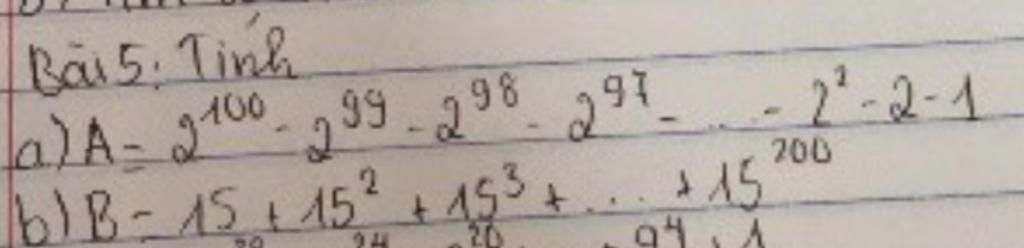 Bài 5: Tính
a) A = 2^100 - 2^99 - 2^98 - 2^97 - ... - 2^2 - 2 - 1
b) B = 15 + 15^2 + 15^3 + ... + 15^200